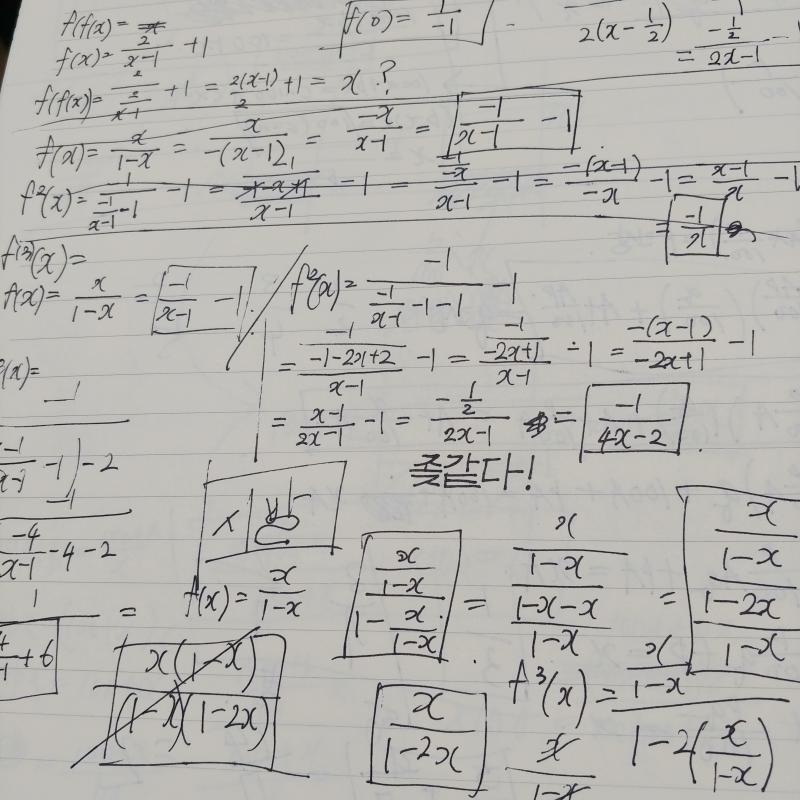 f(f(x)=
f(x)= 2/(x-1) +1
f(f(x)= 2/(2/(x-1)) +1 = 2(x-1)/2 +1 = x ?
f(0)= 1/-1
2(x-1/2)
= (-1/2)/(2x-1)
f(x)= x/(1-x) = x/(-(x-1)) = -x/(x-1) = -1/(x-1) -1
f²(x)= -1 = -1 = -1 = -(x-1)/-x -1 = (x-1)/x -1
= -1/x
f⁽³⁾(x)=
f(x)= x/(1-x) = -1/(x-1) -1
f²(x)= -1/(-1/(x-1) -1-1) -1
= -1/((-1-2x+2)/(x-1)) -1 = -1/((-2x+1)/(x-1)) -1 = -(x-1)/(-2x+1) -1
= (x-1)/(2x-1) -1 = (-1/2)/(2x-1) = -1/(4x-2)
좃같다!
-1) -2
-4/(x-1) -4-2
+6
=
f(x)= x/(1-x)
(x/(1-x))/(1- x/(1-x)) = (x/(1-x))/((1-x-x)/(1-x)) = (x/(1-x))/((1-2x)/(1-x))
x(1-x)/((1-x)(1-2x))
x/(1-2x)
f³(x)= (x/(1-x))/(1-2(x/(1-x)))
x/(1-x)